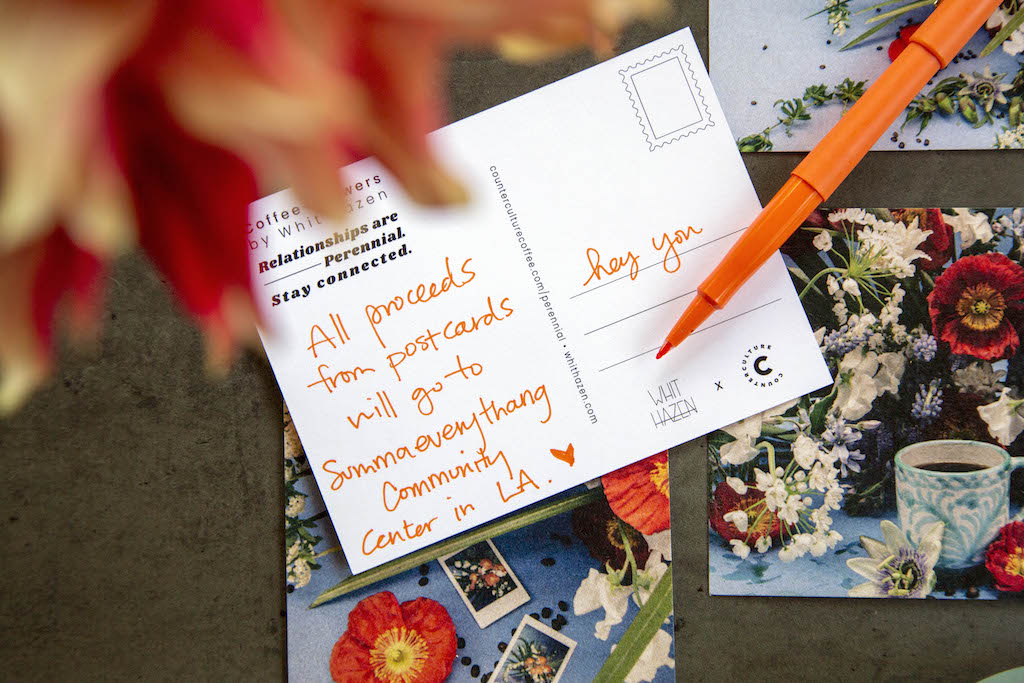 Coffee
by Whit Hazen
Relationships are
Perennial.
Stay connected.
All proceeds
from postcards
will go to
Summaeverythang
Community
Center in LA.
counterculturecoffee.com/perennial • whithazen.com
hey you
WHIT
HAZEN
x
COUNTER CULTURE
C